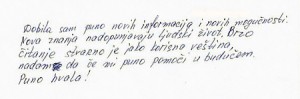 Dobila sam puno novih informacija i novih mogućnosti.
Nova znanja nadopunjavaju ljudski život. Brzo
čitanje stvarno je jako korisna veština,
nadam da će mi puno pomoći u budućem.
Puno hvala!